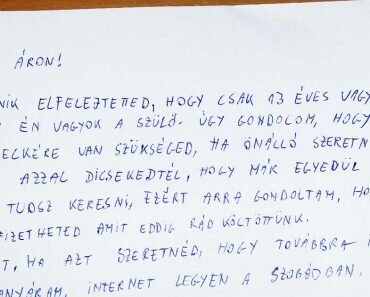 ÁRON!
ELFELEJTETTED, HOGY CSAK 13 ÉVES VAGY
ÉN VAGYOK A SZÜLŐ. ÚGY GONDOLOM, HOGY
VAN SZÜKSÉGED, HA ÖNÁLLÓ SZERETN
AZZAL DICSEKEDTÉL, HOGY MÁR EGYEDÜL
TUDSZ KERESNI, EZÉRT ARRA GONDOLTAM, HO
FIZETHETED AMIT EDDIG RÁD KÖLTÖTTÜNK.
T, HA AZT SZERETNÉD, HOGY TOVÁBBRA I
NYÁRAM, INTERNET LEGYEN A SZOBÁDBAN,